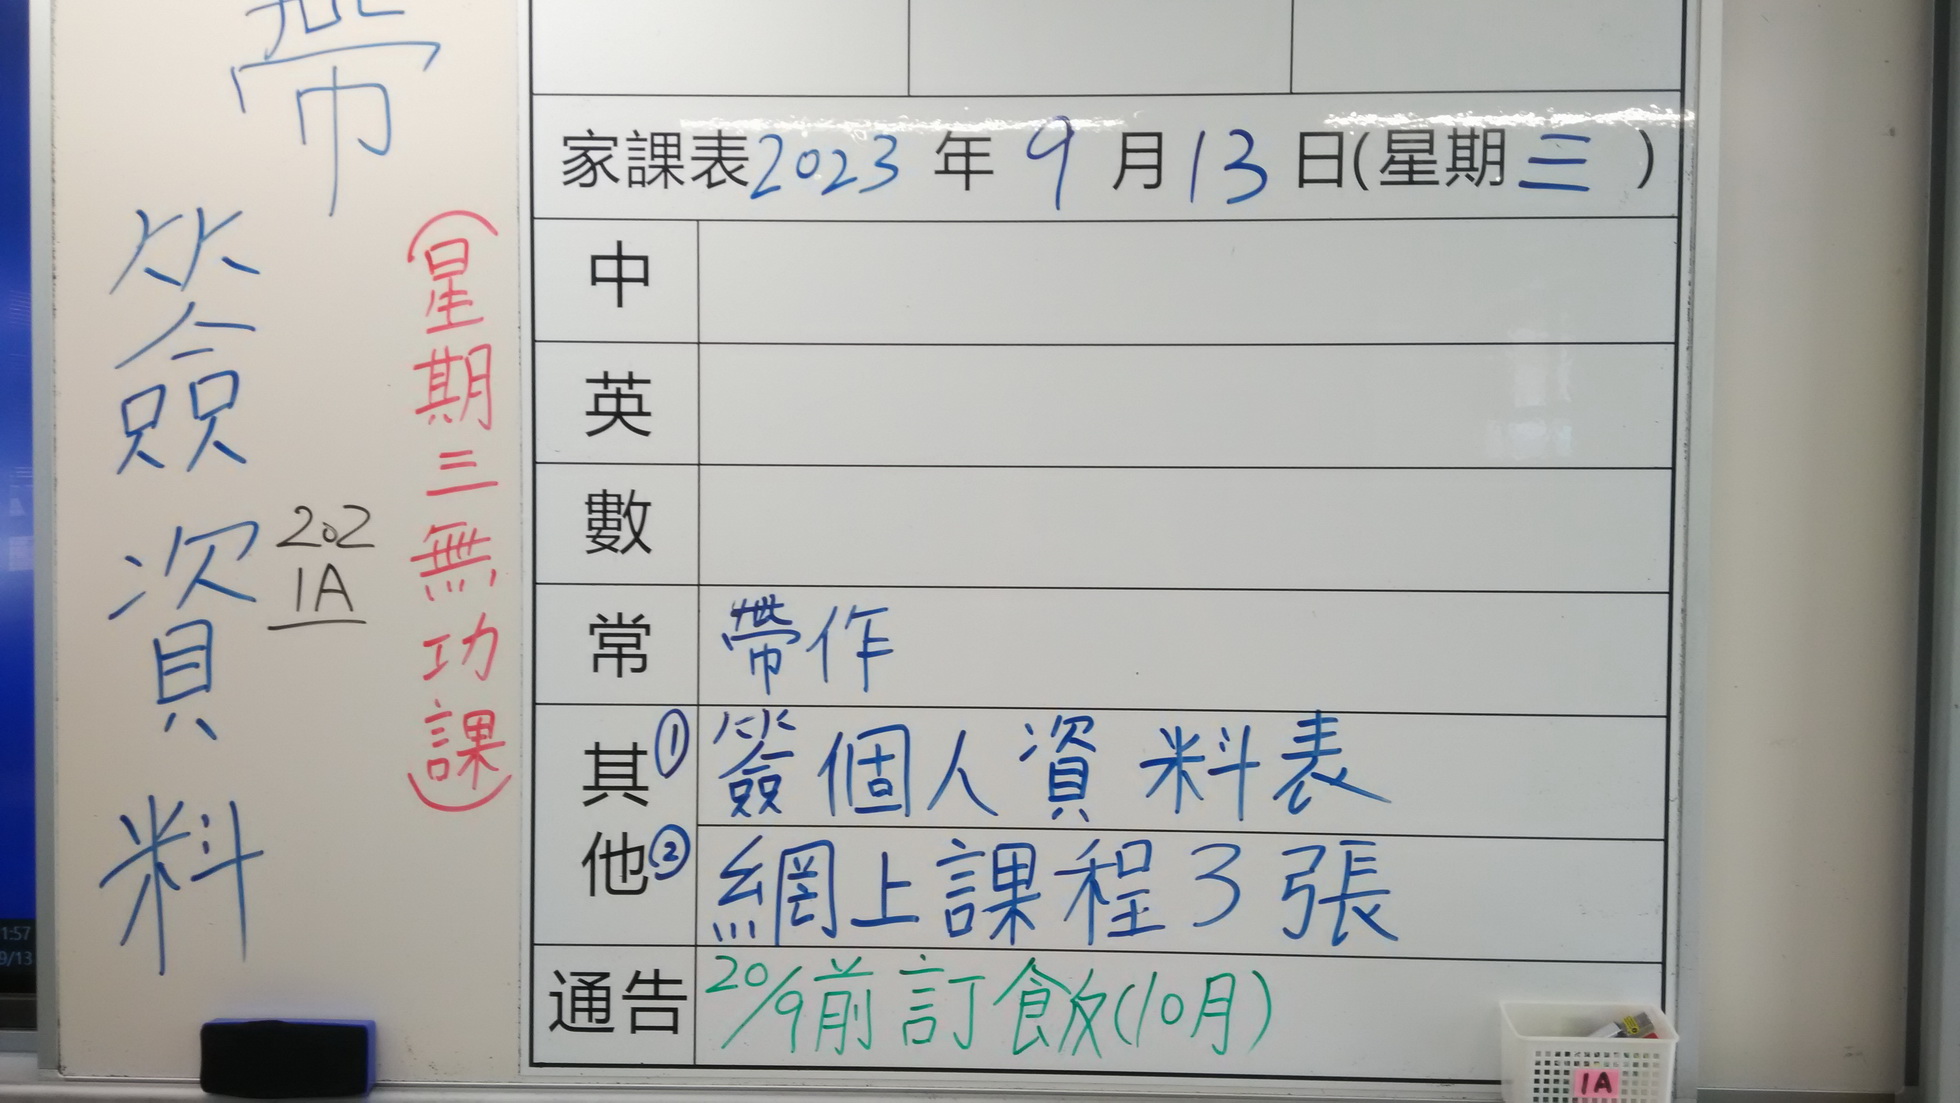 帶
簽資料
202
1A
(星期三無功課)
家課表2023年9月13日(星期三)
中
英
數
常 帶作
其他 ① 簽個人資料表
② 網上課程3張
通告 20/9前訂飯(10月)
1:57
9/13
1A